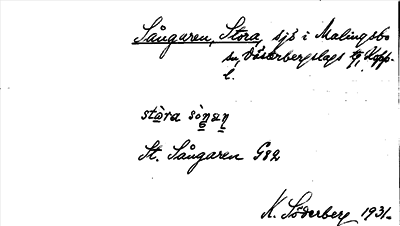 Sångaren, Stora, sjö i Malingsbo
sn, Västerbergslags tg, Kopp.
l.
stòra sòŋan
St. Sångaren G82
K. Söderberg 1931.